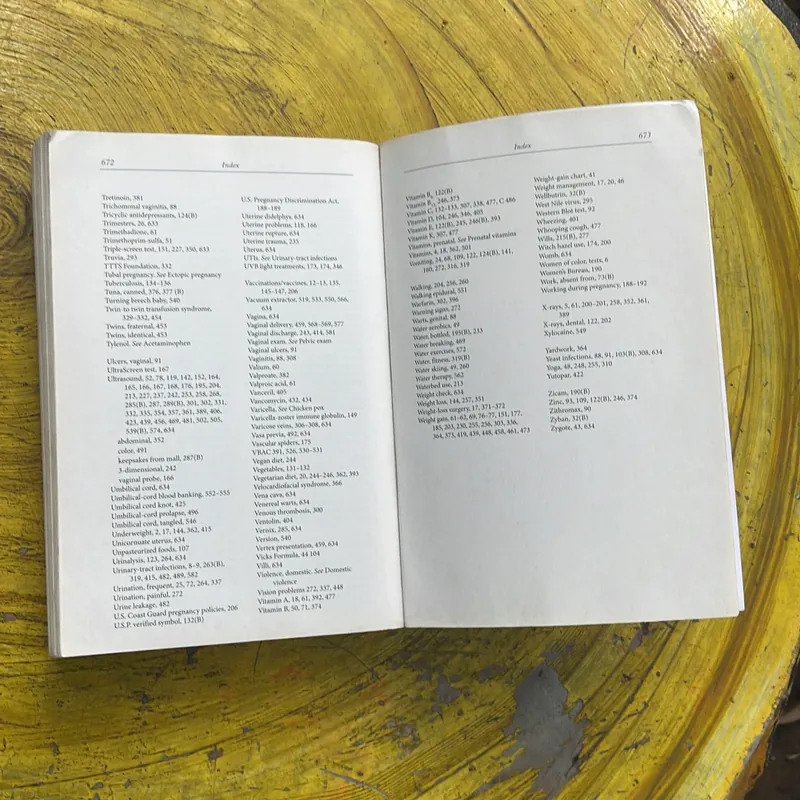 672
Index
Tretinoin, 381
Trichomonal vaginitis, 88
Tricyclic antidepressants, 124(B)
Trimesters, 26, 633
Trimethadione, 61
Trimethoprim-sulfa, 51
Triple-screen test, 151, 227, 330, 633
Truvia, 293
TTTS Foundation, 332
Tubal pregnancy. See Ectopic pregnancy
Tuberculosis, 134–136
Tuna, canned, 376, 377 (B)
Turning breech baby, 540
Twin-to twin transfusion syndrome,
329–332, 454
Twins, fraternal, 453
Twins, identical, 453
Tylenol. See Acetaminophen
Ulcers, vaginal, 91
UltraScreen test, 167
Ultrasound, 52, 78, 119, 142, 152, 164,
165, 166, 167, 168, 176, 195, 204,
213, 227, 237, 242, 253, 258, 268,
285(B), 287, 289(B), 301, 302, 331,
332, 335, 354, 357, 361, 389, 406,
423, 439, 456, 469, 481, 502, 505,
539(B), 574, 634
abdominal, 352
color, 491
keepsakes from mall, 287(B)
3-dimensional, 242
vaginal probe, 166
Umbilical cord, 634
Umbilical-cord blood banking, 552–555
Umbilical cord knot, 425
Umbilical-cord prolapse, 496
Umbilical cord, tangled, 546
Underweight, 2, 17, 144, 362, 415
Unicornuate uterus, 634
Unpasteurized foods, 107
Urinalysis, 123, 264, 634
Urinary-tract infections, 8–9, 263(B),
319, 415, 482, 489, 582
Urination, frequent, 25, 72, 264, 337
Urination, painful, 272
Urine leakage, 482
U.S. Coast Guard pregnancy policies, 206
U.S.P. verified symbol, 132(B)
U.S. Pregnancy Discrimination Act,
188–189
Uterine didelphys, 634
Uterine problems, 118, 166
Uterine rupture, 634
Uterine trauma, 235
Uterus, 634
UTIs. See Urinary-tract infections
UVB light treatments, 173, 174, 346
Vaccinations/vaccines, 12–13, 135,
145–147, 206
Vacuum extractor, 519, 533, 550, 566,
634
Vagina, 634
Vaginal delivery, 459, 568–569, 577
Vaginal discharge, 243, 414, 581
Vaginal exam. See Pelvic exam
Vaginal ulcers, 91
Vaginitis, 88, 308
Valium, 60
Valproate, 382
Valproic acid, 61
Vanceril, 405
Vancomycin, 432, 434
Varicella. See Chicken pox
Varicella-zoster immune globulin, 149
Varicose veins, 306–308, 634
Vasa previa, 492, 634
Vascular spiders, 175
VBAC 391, 526, 530–531
Vegan diet, 244
Vegetables, 131–132
Vegetarian diet, 20, 244–246, 362, 393
Velocardiofacial syndrome, 366
Vena cava, 634
Venereal warts, 634
Venous thrombosis, 300
Ventolin, 404
Vernix, 285, 634
Version, 540
Vertex presentation, 459, 634
Vicks Formula, 44 104
Villi, 634
Violence, domestic. See Domestic
violence
Vision problems 272, 337, 448
Vitamin A, 18, 61, 392, 477
Vitamin B, 50, 71, 374
Index
673
Vitamin B₆, 122(B)
Vitamin B₁₂, 246, 373
Vitamin C, 132–133, 307, 338, 477, C 486
Vitamin D, 104, 246, 346, 405
Vitamin E, 122(B), 245, 246(B), 393
Vitamin K, 307, 477
Vitamins, prenatal. See Prenatal vitamins
Vitamins, 4, 18, 362, 501
Vomiting, 24, 68, 109, 122, 124(B), 141,
160, 272, 316, 319
Walking, 204, 256, 260
Walking epidural, 551
Warfarin, 302, 396
Warning signs, 272
Warts, genital, 88
Water aerobics, 49
Water, bottled, 195(B), 233
Water breaking, 469
Water exercises, 572
Water, fitness, 319(B)
Water skiing, 49, 260
Water therapy, 562
Waterbed use, 213
Weight check, 634
Weight loss, 144, 257, 351
Weight-loss surgery, 17, 371–372
Weight gain, 61–62, 69, 76–77, 151, 177,
185, 203, 230, 255, 256, 303, 336,
364, 373, 419, 439, 448, 458, 461, 473
Weight-gain chart, 41
Weight management, 17, 20, 46
Wellbutrin, 32(B)
West Nile virus, 295
Western Blot test, 92
Wheezing, 401
Whooping cough, 477
Wills, 215(B), 277
Witch hazel use, 174, 200
Womb, 634
Women of color, tests, 6
Women's Bureau, 190
Work, absent from, 73(B)
Working during pregnancy, 188–192
X-rays, 5, 61, 200–201, 258, 352, 361,
389
X-rays, dental, 122, 202
Xylocaine, 549
Yardwork, 364
Yeast infections, 88, 91, 103(B), 308, 634
Yoga, 48, 248, 255, 310
Yutopar, 422
Zicam, 190(B)
Zinc, 93, 109, 122(B), 246, 374
Zithromax, 90
Zyban, 32(B)
Zygote, 43, 634